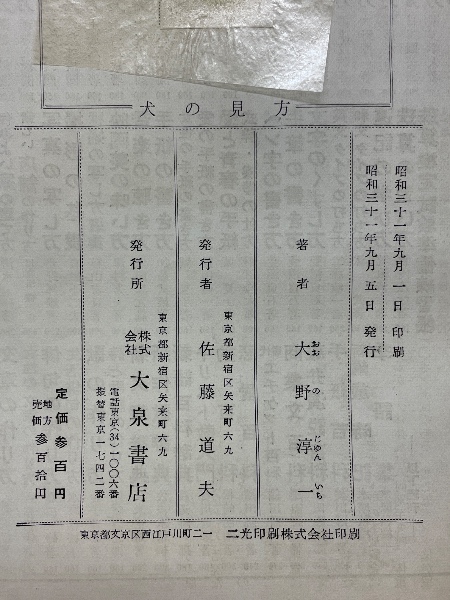 犬の見方
昭和三十一年九月一日 印刷
昭和三十一年九月五日 発行
著者 大野淳一
おお の じゆん いち
東京都新宿区矢来町六九
発行者 佐藤道夫
東京都新宿区矢来町六九
発行所 株式会社 大泉書店
電話東京(34)一〇〇六番
振替東京一七四二番
定価参百円
地方売価 参百拾円
東京都文京区西江戸川町二一 二光印刷株式会社印刷